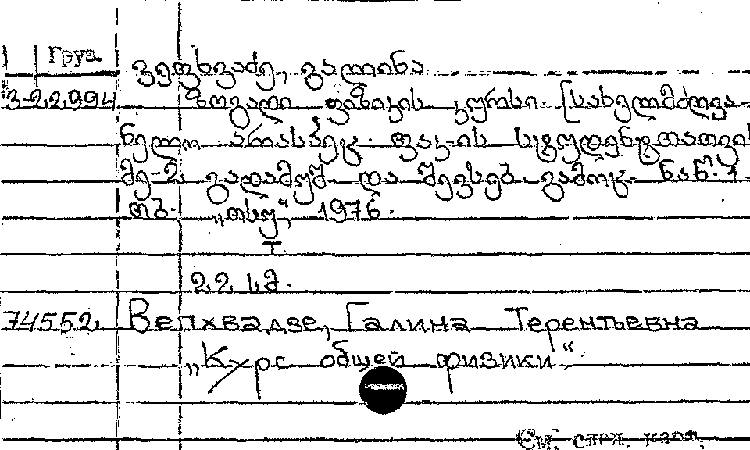 Груз.
ვეფხვაძე, გალინა
3-22994 ზოგადი ფიზიკის კურსი. [სახელმძღვა-
ნელო არასპეც. ფაკ-ის სტუდენტთათვის
მე-2 გადამუშ. და შევსებ. გამოც. ნაწ. 1
თბ. „თსუ“, 1976.
Т.
22 სმ.
74552. Вепхвадзе, Галина Терентьевна
„Курс общей физики“.
См. след. карт.